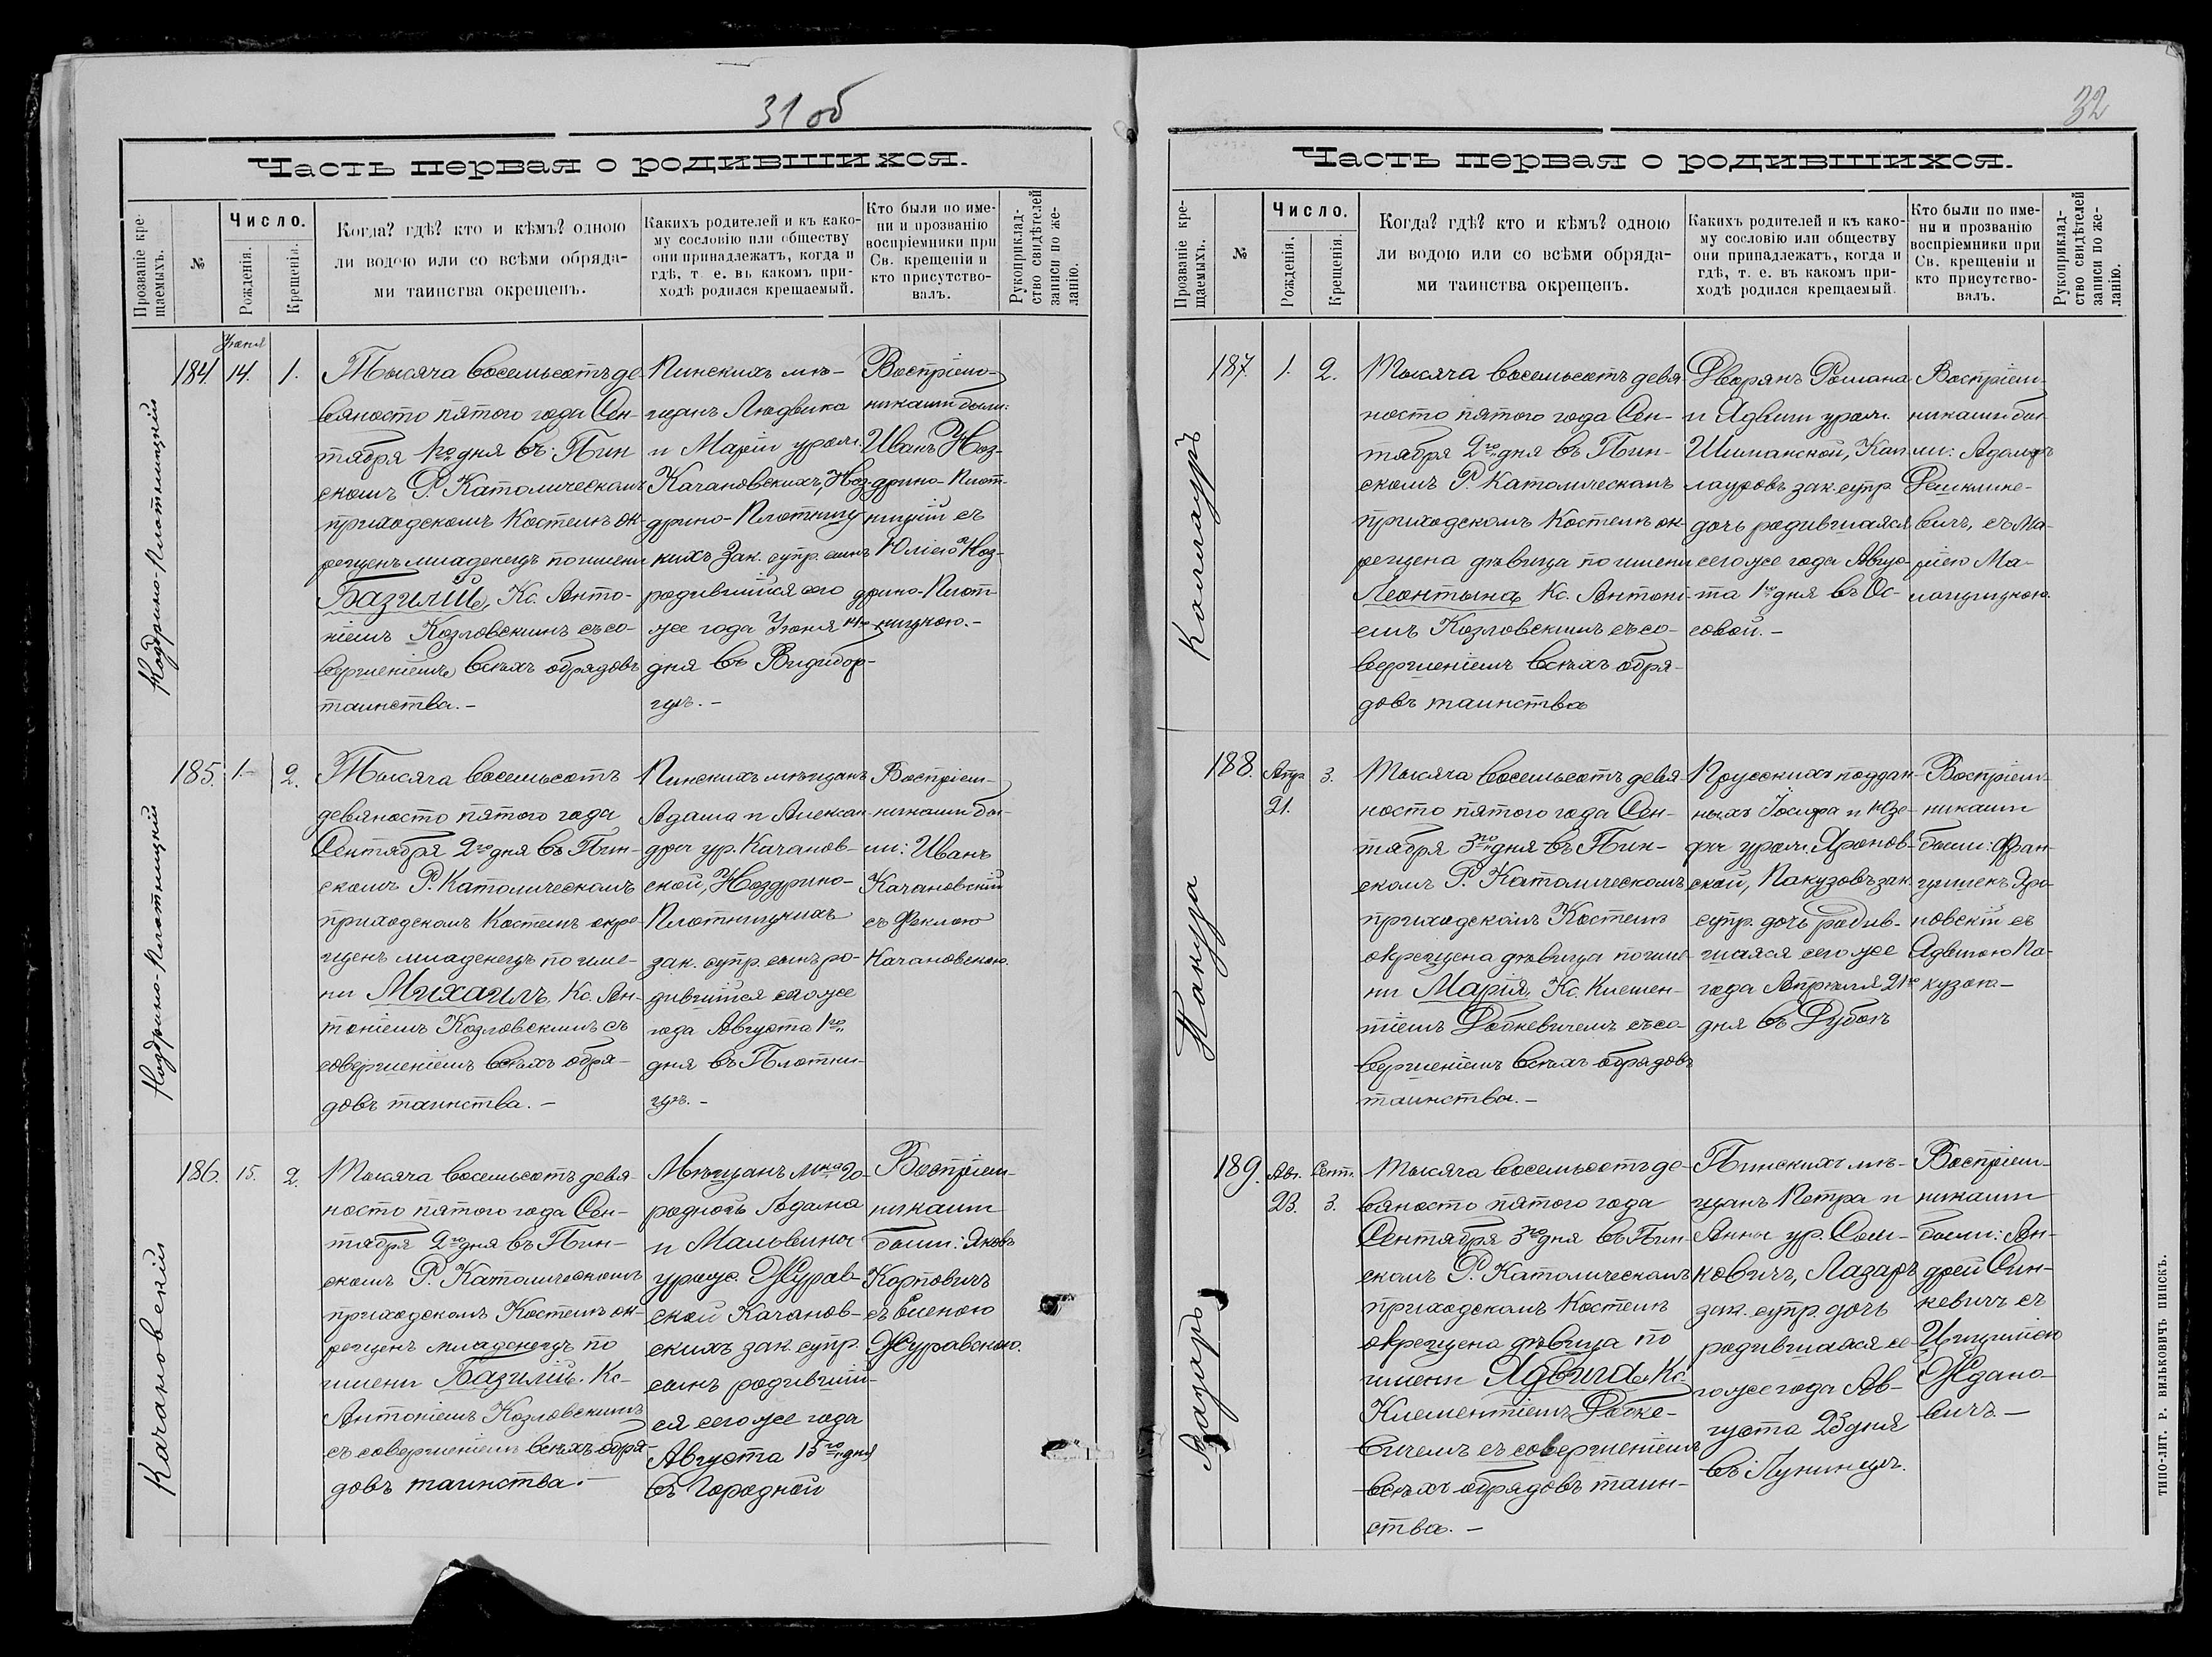 31 об
Часть первая о родившихся.
Прозваніе кре-
щаемыхъ.
№
Число.
Рожденія.
Крещенія.
Когда? гдѣ? кто и кѣмъ? одною
ли водою или со всѣми обряда-
ми таинства окрещенъ.
Какихъ родителей и къ како-
му сословію или обществу
они принадлежатъ, когда и
гдѣ, т. е. въ какомъ при-
ходѣ родился крещаемый.
Кто были по име-
ни и прозванію
воспріемники при
Св. крещеніи и
кто присутство-
валъ.
Рукоприклад-
ство свидѣтелей
записи по же-
ланію.
Ноздрино-Плотницкій
184.
Іюня
14.
1.
Тысяча восемьсотъ де-
вяносто пятого года Сен-
тября 1го дня въ Пин
скомъ Р. Католическомъ
приходскомъ Костелѣ ок-
рещенъ младенецъ по имени
Базилій, Кс. Анто-
ніемъ Козловскимъ съ со-
вершеніемъ всѣхъ обрядовъ
таинства. -
Пинскихъ мѣ-
щанъ Людвика
и Маріи урожд.
Качановскихъ, Ноз-
дрино-Плотниц
кихъ зак. супр. сынъ
родившійся сего
же года Іюня 14го
дня въ Видибор-
цѣ. -
Воспріем-
никами были:
Иванъ Ноз-
дрино-Плот-
ницкій съ
Юліею Ноз-
дрино-Плот-
ницкою. -
Ноздрино-Плотницкій
185.
1.-
2.
Тысяча восемьсотъ
девяносто пятого года
Сентября 2го дня въ Пин-
скомъ Р. Католическомъ
приходскомъ Костелѣ окре-
щенъ младенецъ по име-
ни Михаилъ, Кс. Ан-
тоніемъ Козловскимъ съ
совершеніемъ всѣхъ обря-
довъ таинства. -
Пинскихъ мѣщанъ
Адама и Алексан-
дры ур. Качанов-
ской, Ноздрино-
Плотницкихъ
зак. супр. сынъ ро-
дившійся сего же
года Августа 1го
дня въ Плотни-
цѣ. -
Воспріем-
никами бы-
ли: Иванъ
Качановскій
съ Феклою
Качановскою.
Качановскій
186.
15.
2.
Тысяча восемьсотъ девя-
носто пятого года Сен-
тября 2го дня въ Пин-
скомъ Р. Католическомъ
приходскомъ Костелѣ ок-
рещенъ младенецъ по
имени Базилій. Кс.
Антоніемъ Козловскимъ
съ совершеніемъ всѣхъ обря-
довъ таинства. -
Мѣщанъ м-ка Го-
родногъ Адама
и Мальвины
урожд. Журав-
ской Качанов-
скихъ зак. супр.
сынъ родившій-
ся сего же года
Августа 15го дня
въ Городной
Воспріем-
никами
были: Яковъ
Карповичъ
съ Еленою
Журавскою.
32
Часть первая о родившихся.
Прозваніе кре-
щаемыхъ.
№
Число.
Рожденія.
Крещенія.
Когда? гдѣ? кто и кѣмъ? одною
ли водою или со всѣми обряда-
ми таинства окрещенъ.
Какихъ родителей и къ како-
му сословію или обществу
они принадлежатъ, когда и
гдѣ, т. е. въ какомъ при-
ходѣ родился крещаемый.
Кто были по име-
ни и прозванію
воспріемники при
Св. крещеніи и
кто присутство-
валъ.
Рукоприклад-
ство свидѣтелей
записи по же-
ланію.
Каплауръ
187.
1.
2.
Тысяча восемьсотъ девя-
носто пятого года Сен-
тября 2го дня въ Пин-
скомъ Р. Католическомъ
приходскомъ Костелѣ ок-
рещена дѣвица по имени
Леонтина, Кс. Антоні-
емъ Козловскимъ съ со-
вершеніемъ всѣхъ обря-
довъ таинства
Дворянъ Романа
и Ядвиги урожд.
Шиманской, Кап
лауровъ зак. супр.
дочь родившаяся
сего же года Авгус-
та 1го дня въ Ос-
совой. -
Воспріем-
никами бы-
ли: Адольфъ
съ Ма-
ріею
Какуза
188.
Апр.
21.
3.
Тысяча восемьсотъ девя-
носто пятого года Сен-
тября 3го дня въ Пин-
скомъ Р. Католическомъ
приходскомъ Костелѣ
окрещена дѣвица по име-
ни Марія, Кс. Клемен-
тіемъ Добкевичемъ съ со-
вершеніемъ всѣхъ обрядовъ
таинства. -
Прусскихъ поддан-
ныхъ Іосифа и Юзе-
фы урожд. Яронов-
ской, Пакузовъ зак.
супр. дочь родив-
шаяся сего же
года Апрѣля 21го
дня въ Дубоѣ
Воспріем-
никами
были: Фран-
цишекъ Яро-
новскій съ
Ядвигою Па-
кузою -
Лазаръ
189.
Авг.
23.
Сент.
3.
Тысяча восемьсотъ де-
вяносто пятого года
Сентября 3го дня въ Пин-
скомъ Р. Католическомъ
приходскомъ Костелѣ
окрещена дѣвица по
имени Ядвига, Кс.
Клементіемъ Добке-
вичемъ съ совершеніемъ
всѣхъ обрядовъ таин-
ства. -
Пинскихъ мѣ-
щанъ Петра и
Анны ур. Соль-
ковичъ, Лазаръ
зак. супр. дочь
родившаяся се-
го же года Ав-
густа 23 дня
въ Лунинцѣ.
Воспріем-
никами
были: Ан-
дрей Син-
кевичъ съ
Цициліею
Ждано-
вичъ -
ТИПО-ЛИТ. Р. ВИЛЬКОВИЧЪ ПИНСКЪ.